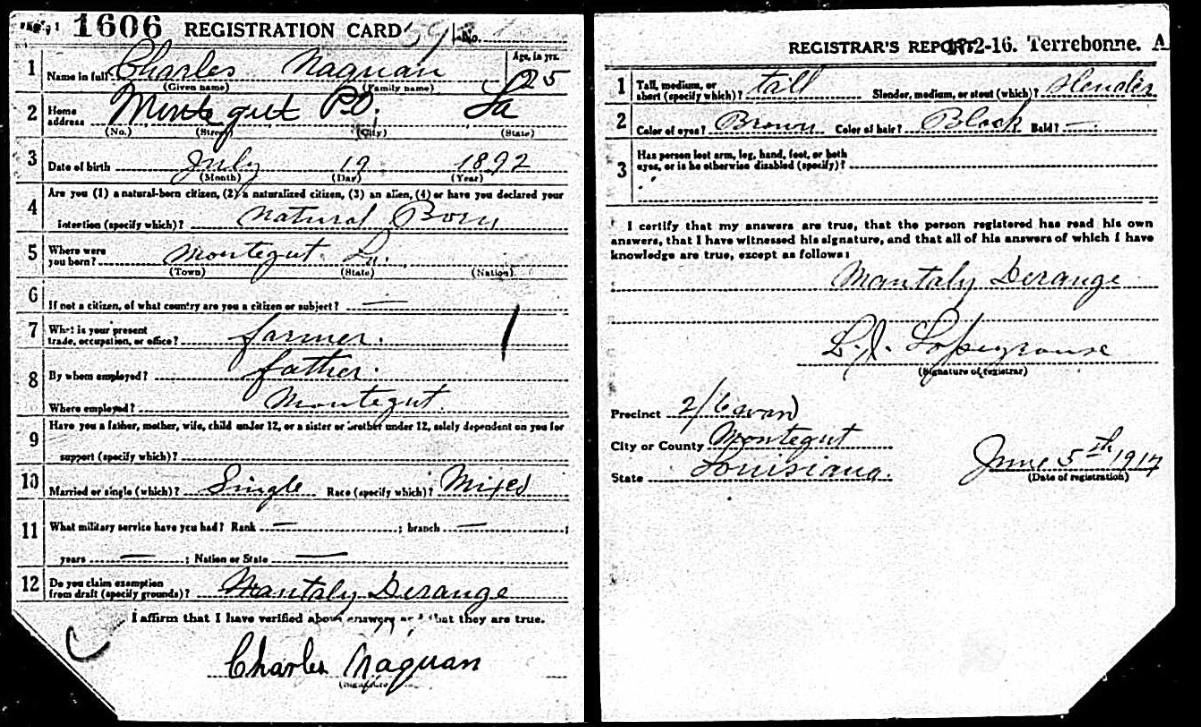 1606 REGISTRATION CARD No.
1 Name in full Charles Naquan Age, in yrs. 25
(Given name) (Family name)
2 Home address Montegut P.O. La
(No.) (Street) (City) (State)
3 Date of birth July 19 1892
(Month) (Day) (Year)
4 Are you (1) a natural-born citizen, (2) a naturalized citizen, (3) an alien, (4) or have you declared your
intention (specify which)? Natural Born
5 Where were you born? Montegut La.
(Town) (State) (Nation)
6 If not a citizen, of what country are you a citizen or subject? —
7 What is your present trade, occupation, or office? farmer.
8 By whom employed? father.
Where employed? Montegut.
9 Have you a father, mother, wife, child under 12, or a sister or brother under 12, solely dependent on you for
support (specify which)?
10 Married or single (which)? Single Race (specify which)? Mixed
11 What military service have you had? Rank — ; branch — ;
years — ; Nation or State —
12 Do you claim exemption from draft (specify grounds)? Mantaly Derange
I affirm that I have verified above answers and that they are true.
Charles Naquan
(Signature)
REGISTRAR'S REPORT 2-16. Terrebonne. A
1 Tall, medium, or short (specify which)? tall Slender, medium, or stout (which)? Slender
2 Color of eyes? Brown Color of hair? Black Bald? —
3 Has person lost arm, leg, hand, foot, or both
eyes, or is he otherwise disabled (specify)?
I certify that my answers are true, that the person registered has read his own
answers, that I have witnessed his signature, and that all of his answers of which I have
knowledge are true, except as follows:
Mantaly Derange
(Signature of registrar)
Precinct 2/6 ward
City or County Montegut
State Louisiana.
June 5th 1917
(Date of registration)